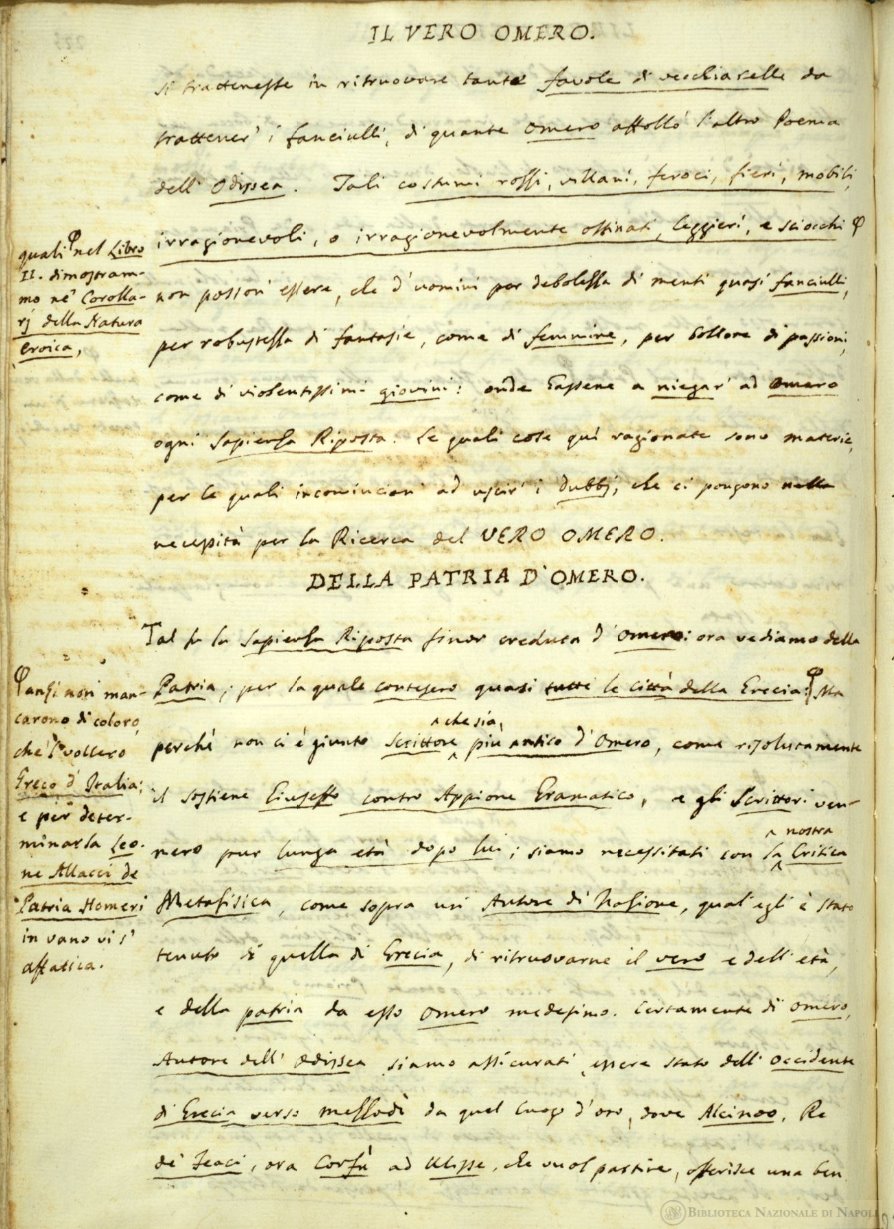 IL VERO OMERO.
si trattenesse in ritruovare tante favole di vecchiarelle da
trattener' i fanciulli, di quante Omero affollò l'altro Poema
dell' Odissea. Tali costumi rozzi, villani, feroci, fieri, mobili,
irragionevoli, o irragionevolmente ostinati, leggieri, e sciocchi φ
φ quali nel Libro
II. dimostram-
mo ne' Corolla-
rj della Natura
Eroica,
non posson' essere, che d'uomini per debolezza di menti quasi fanciulli,
per robustezza di fantasie, come di femmine, per bollore di passioni,
come di violentissimi giovini: onde hassene a niegar' ad Omero
ogni Sapienza Riposta. Le quali cose quì ragionate sono materie,
per le quali incomincian' ad uscir' i dubbj, che ci pongono nella
necessità per la Ricerca del VERO OMERO.
DELLA PATRIA D'OMERO.
Tal fu la Sapienza Riposta finor creduta d'Omero: ora vediamo della
Patria; per la quale contesero quasi tutte le città della Grecia: φ Ma
φ anzi non man-
carono di coloro,
che 'l vollero
Greco d'Italia:
e per deter-
minarla Leo-
ne Allacci de
Patria Homeri
in vano vi s'
affatica.
perchè non ci è giunto Scrittore che sia, più antico d'Omero, come risolutamente
il sostiene Giuseffo contro Appione Gramatico, e gli Scrittori ven-
nero pur lunga età dopo lui; siamo necessitati con la nostra Critica
Metafisica, come sopra un Autore di Nazione, qual' egli è stato
tenuto di quella di Grecia, di ritruovarne il vero e dell' età,
e della patria da esso Omero medesimo. Certamente di Omero,
Autore dell' Odissea siamo assicurati, essere stato dell' occidente
di Grecia verso mezzodì da quel luogo d'oro, dove Alcinoo, Re
de' Feaci, ora Corfù ad Ulisse, che vuol partire, offerisce una ben
BIBLIOTECA NAZIONALE DI NAPOLI